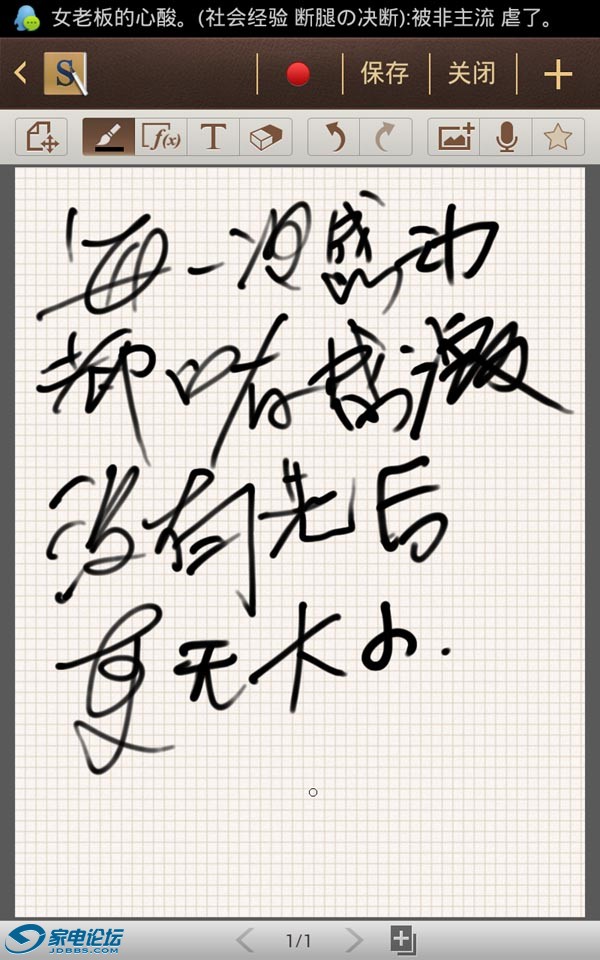 女老板的心酸。(社会经验 断腿の决断):被非主流 虐了。
S 保存 关闭
f(x) T
每一次感动
都只有感激
没有先后
更无大小.
家电论坛 1/1
JDBBS.COM